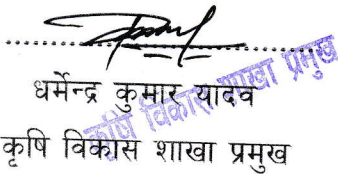 धर्मेन्द्र कुमार यादव
कृषि विकास शाखा प्रमुख
कृषि विकास शाखा प्रमुख